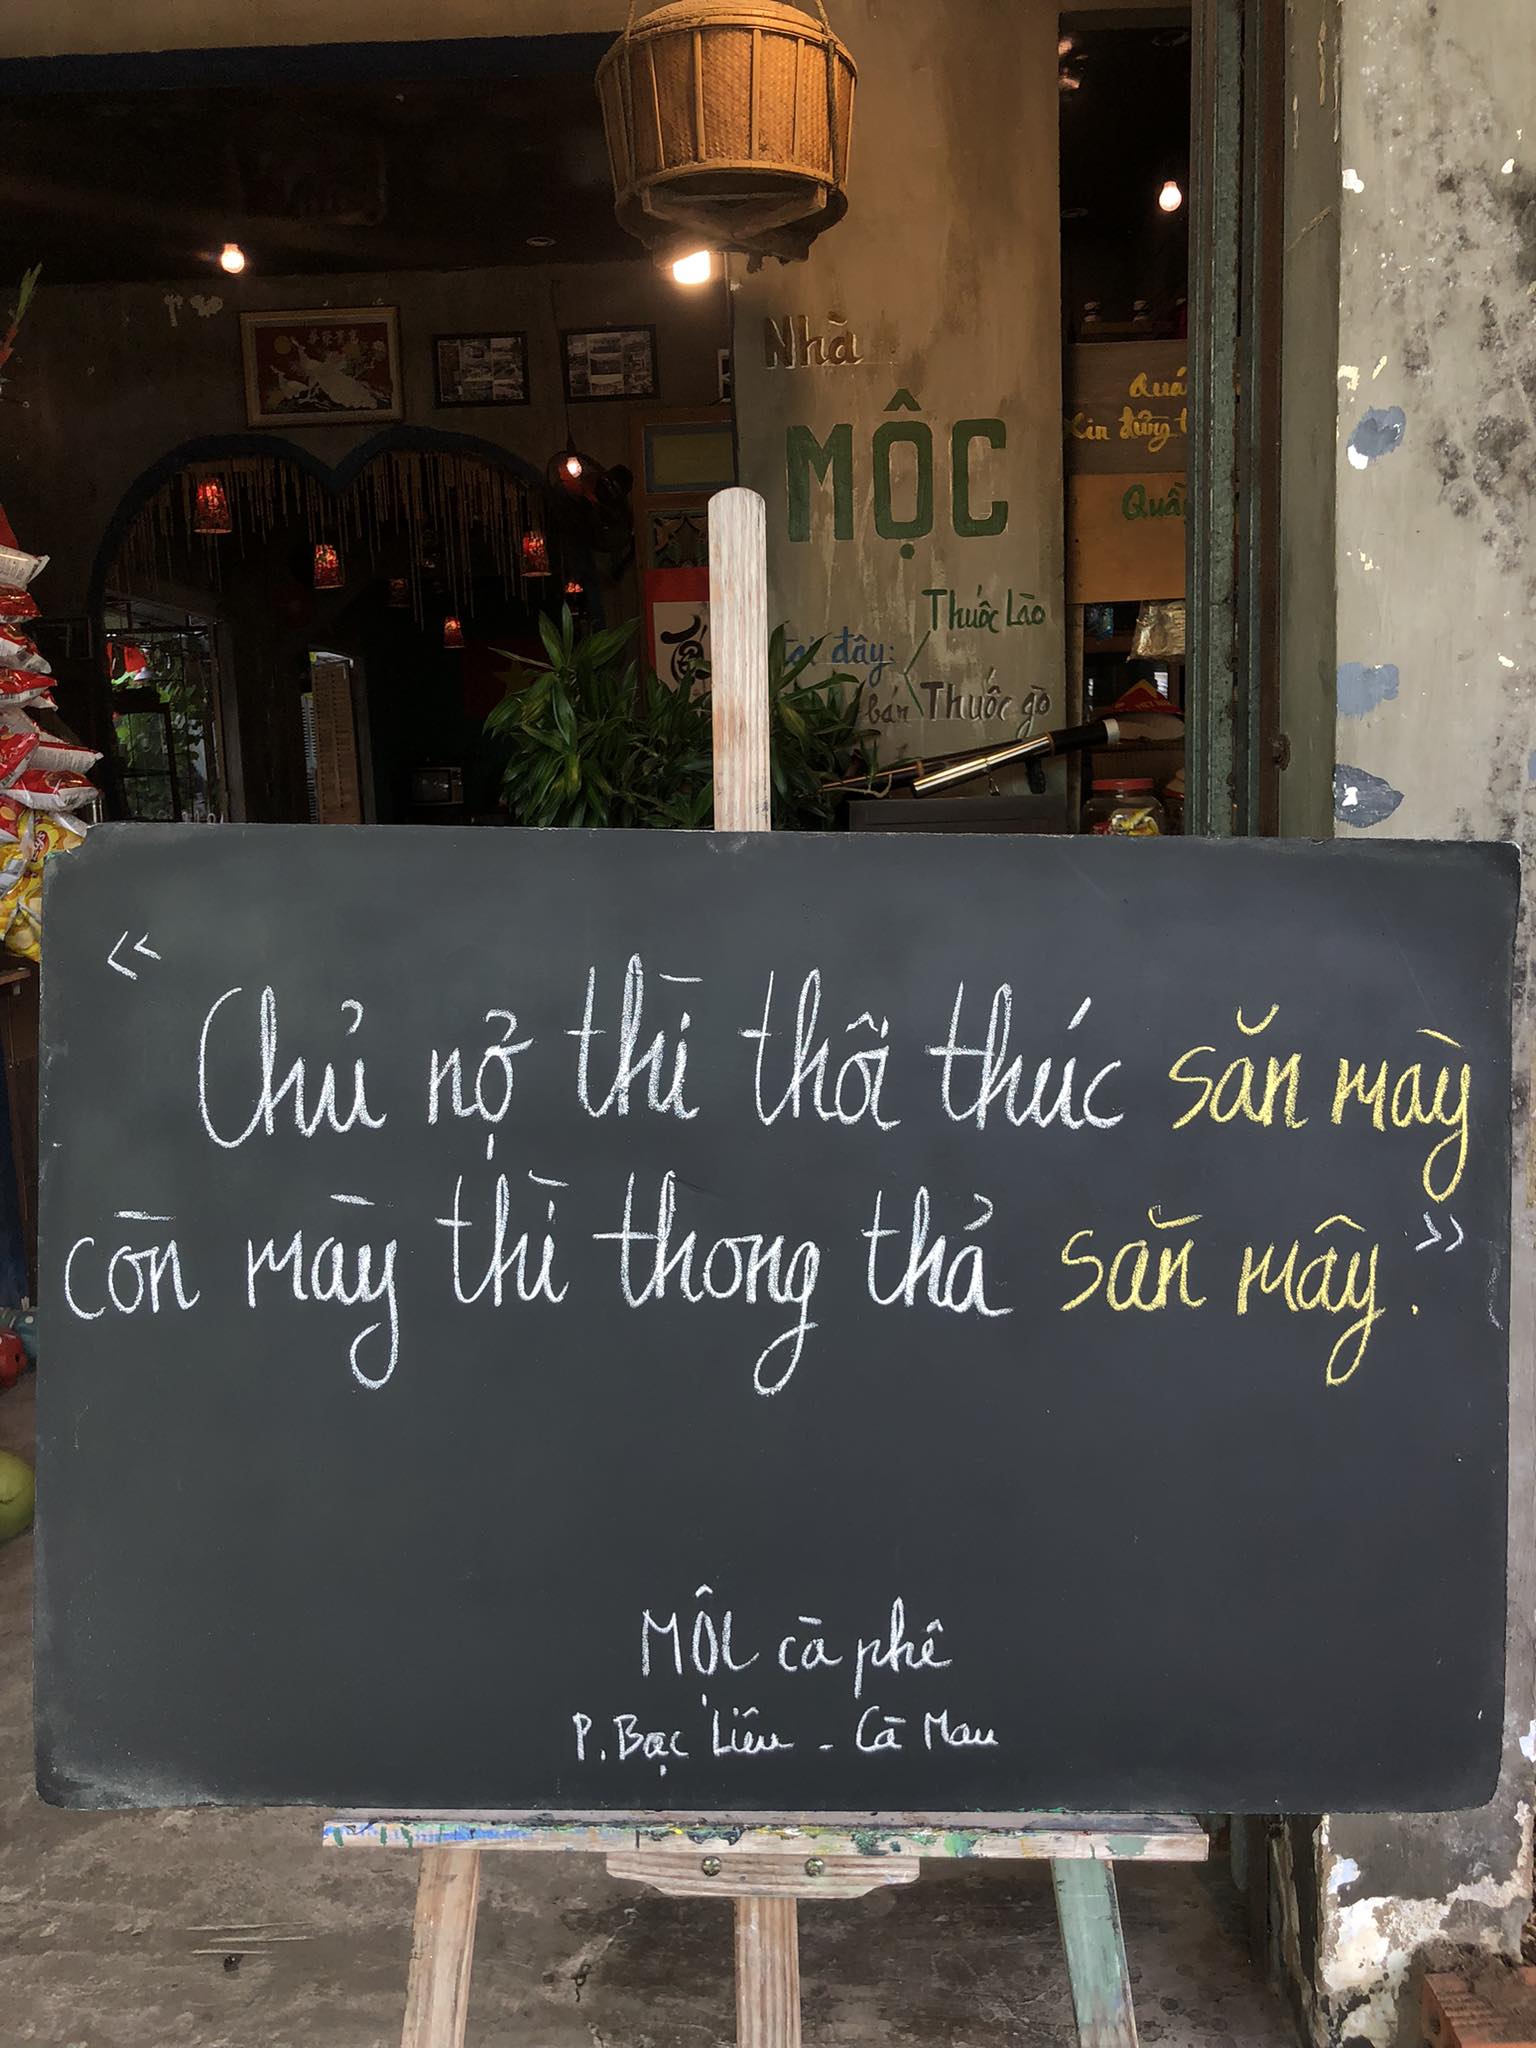 Nhà
MỘC
Quá
Xin đừng
Thuốc Lào
tại đây:
bán Thuốc gò
« Chủ nợ thì thôi thúc săn mày
còn mày thì thong thả săn mây. »
MỘC cà phê
P. Bạc Liêu - Cà Mau